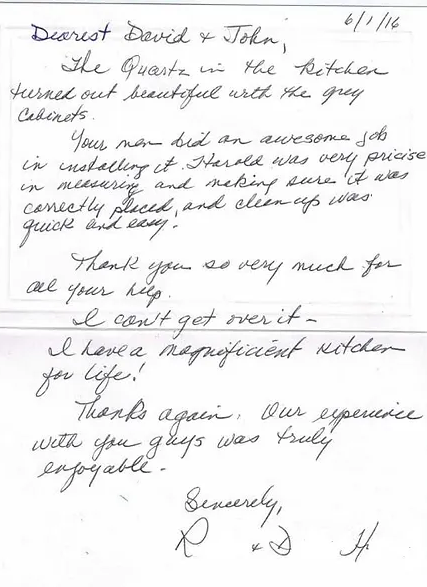 6/1/16
Dearest David & John,
The Quartz in the kitchen
turned out beautiful with the grey
cabinets.
Your men did an awesome job
in installing it. Harold was very pricise
in measuring and making sure it was
correctly placed, and clean up was
quick and easy.
Thank you so very much for
all your help.
I can't get over it -
I have a magnificient kitchen
for life!
Thanks again. Our experience
with you guys was truly
enjoyable.
Sincerely,
R & D H